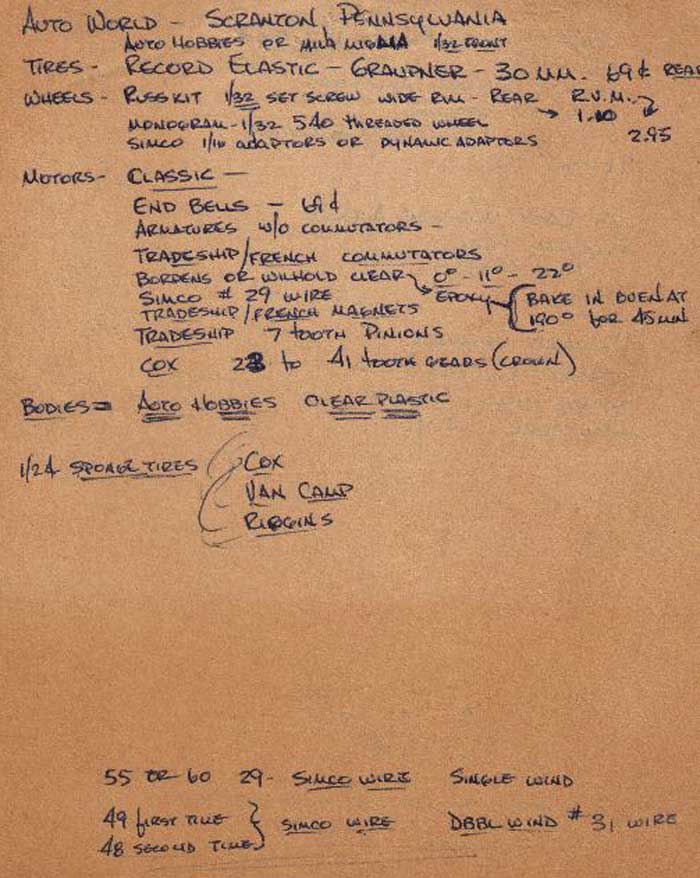 AUTO WORLD - SCRANTON, PENNSYLVANIA
AUTO HOBBIES OR MILA MIGLIA 1/32 FRONT
TIRES - RECORD ELASTIC - GRAUPNER - 30 MM. 69¢ REAR
WHEELS - RUSSKIT 1/32 SET SCREW WIDE RIM - REAR R.V.M.
MONOGRAM - 1/32 540 THREADED WHEEL → 1.10
SIMCO 1/10 ADAPTORS OR DYNAMIC ADAPTORS 2.95
MOTORS - CLASSIC -
END BELLS - 69¢
ARMATURES W/O COMMUTATORS -
TRADESHIP/FRENCH COMMUTATORS
BORDENS OR WILHOLD CLEAR 0° - 11° - 22°
SIMCO # 29 WIRE EPOXY { BAKE IN OVEN AT
TRADESHIP/FRENCH MAGNETS 190° FOR 45 MIN
TRADESHIP 7 TOOTH PINIONS
COX 28 TO 41 TOOTH GEARS (CROWN)
BODIES = AUTO HOBBIES CLEAR PLASTIC
1/24 SPONGE TIRES ( COX
VAN CAMP
RIGGINS
55 OR 60 29 - SIMCO WIRE SINGLE WIND
49 FIRST TIME } SIMCO WIRE DBBL WIND # 31 WIRE
48 SECOND TIME